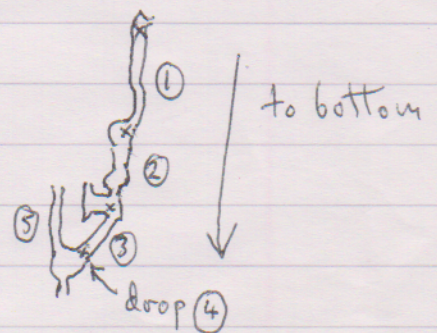 ①
to bottom
②
⑤
③
drop ④